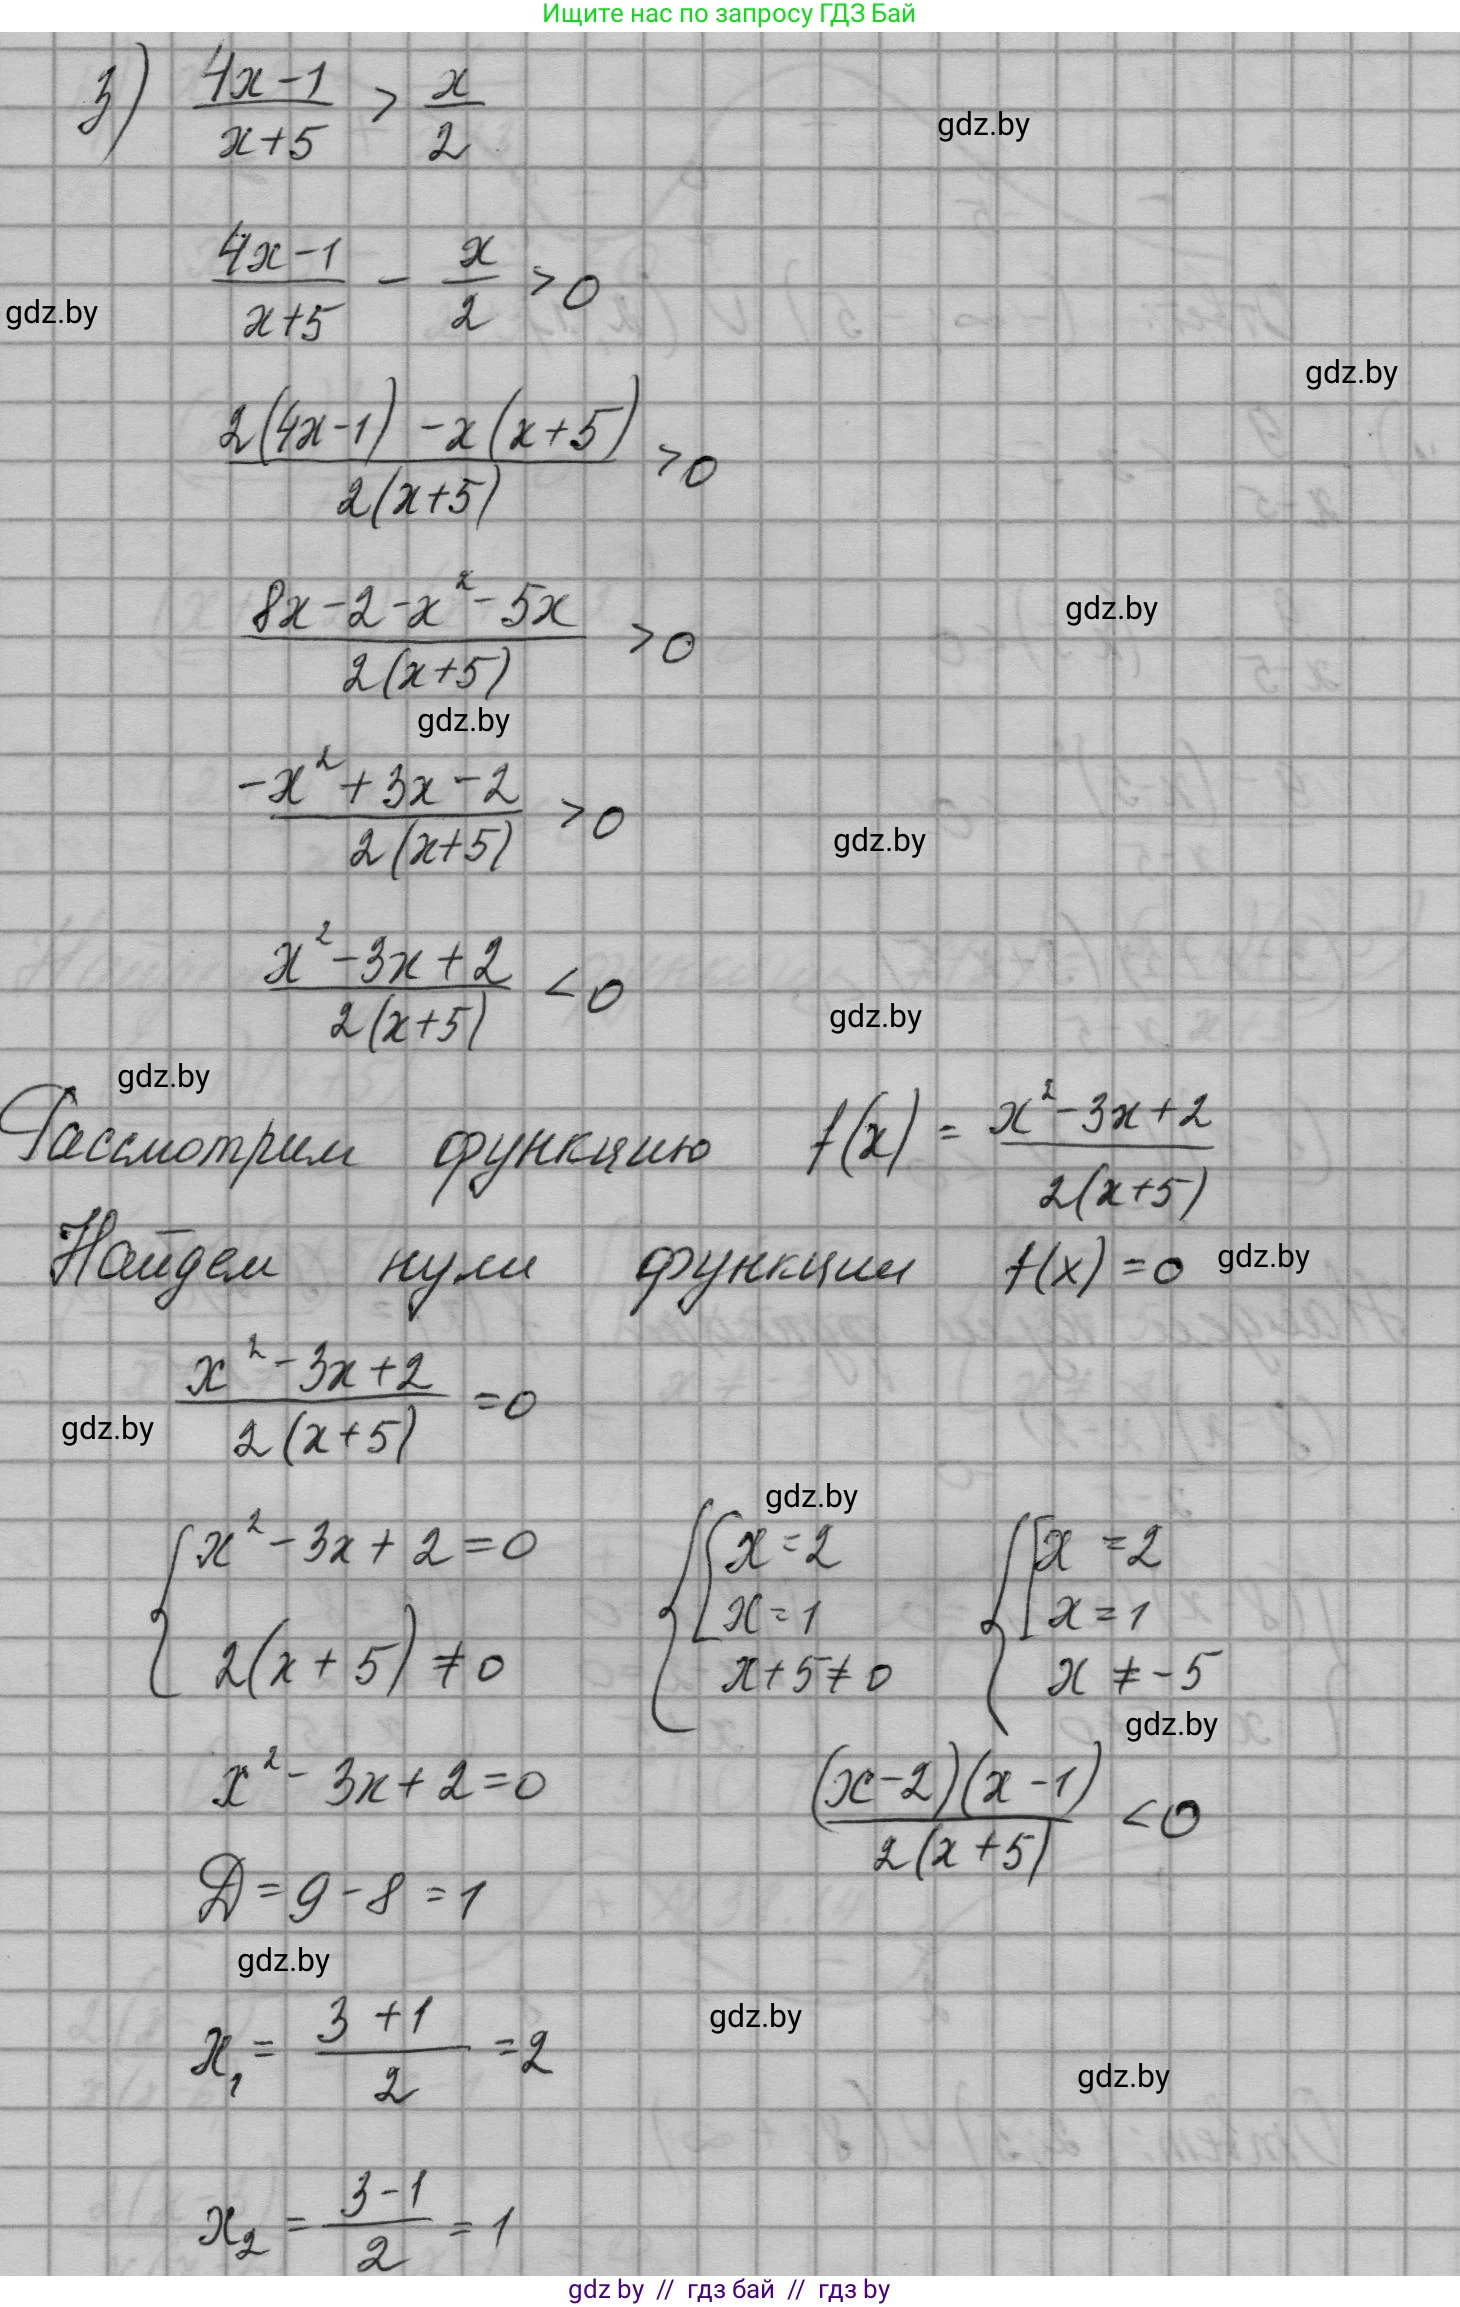 Ищите нас по запросу ГДЗ Бай
з) (4x-1)/(x+5) > x/2
gdz.by
(4x-1)/(x+5) - x/2 > 0
gdz.by
gdz.by
(2(4x-1) - x(x+5))/(2(x+5)) > 0
(8x-2-x²-5x)/(2(x+5)) > 0
gdz.by
gdz.by
(-x²+3x-2)/(2(x+5)) > 0
gdz.by
(x²-3x+2)/(2(x+5)) < 0
gdz.by
gdz.by
Рассмотрим функцию f(x) = (x²-3x+2)/(2(x+5))
Найдем нули функции f(x)=0 gdz.by
(x²-3x+2)/(2(x+5)) = 0
gdz.by
gdz.by
{ x²-3x+2=0 { [ x=2 { [ x=2
x=1 x=1
2(x+5)≠0 x+5≠0 x≠-5
gdz.by
x²-3x+2=0 ((x-2)(x-1))/(2(x+5)) < 0
D=9-8=1
gdz.by
gdz.by
x₁ = (3+1)/2 = 2
gdz.by
x₂ = (3-1)/2 = 1
gdz by // гдз бай // гдз by